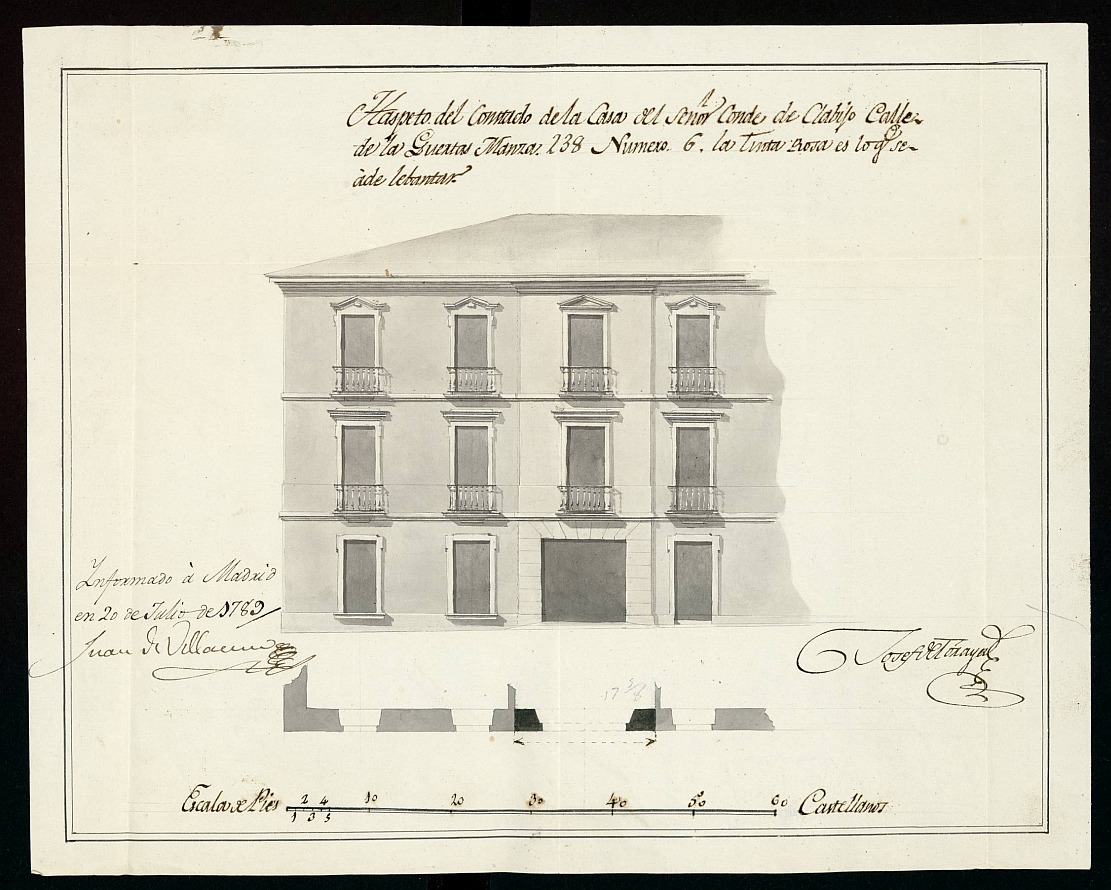 Haspeto del Cosntado de la Casa del Señor Conde de Clabijo Calle
de la Guertas Manza. 238 Numero. 6. la Tinta Rosa es lo q.e se
à de lebantar.
Informado à Madrid
en 20 de Julio de 1789
Juan de Villanueva
Josef de
17 5/8
Escala de Pies 2 4 10 20 30 40 50 60 Castellanos
1 3 5